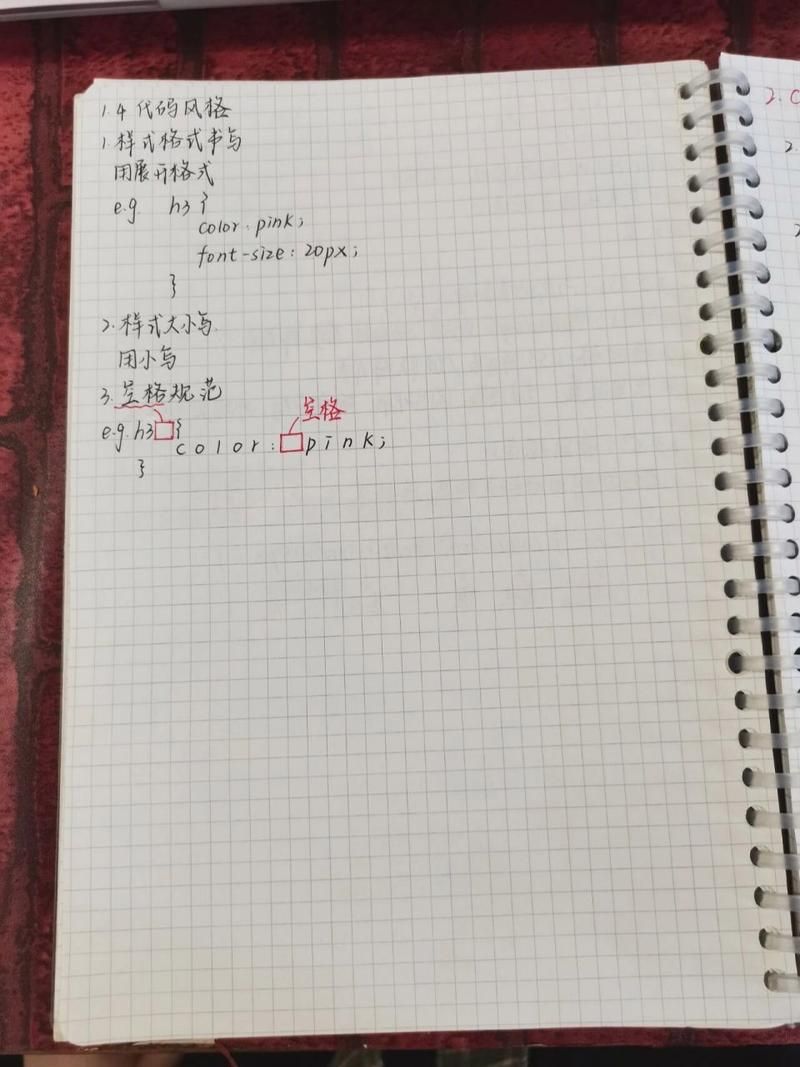 1.4 代码风格
1.样式格式书写
用展开格式
e.g. h3 {
color: pink;
font-size: 20px;
}
2.样式大小写.
用小写
3.空格规范
空格
e.g. h3 {
color: pink;
}
2.
2.